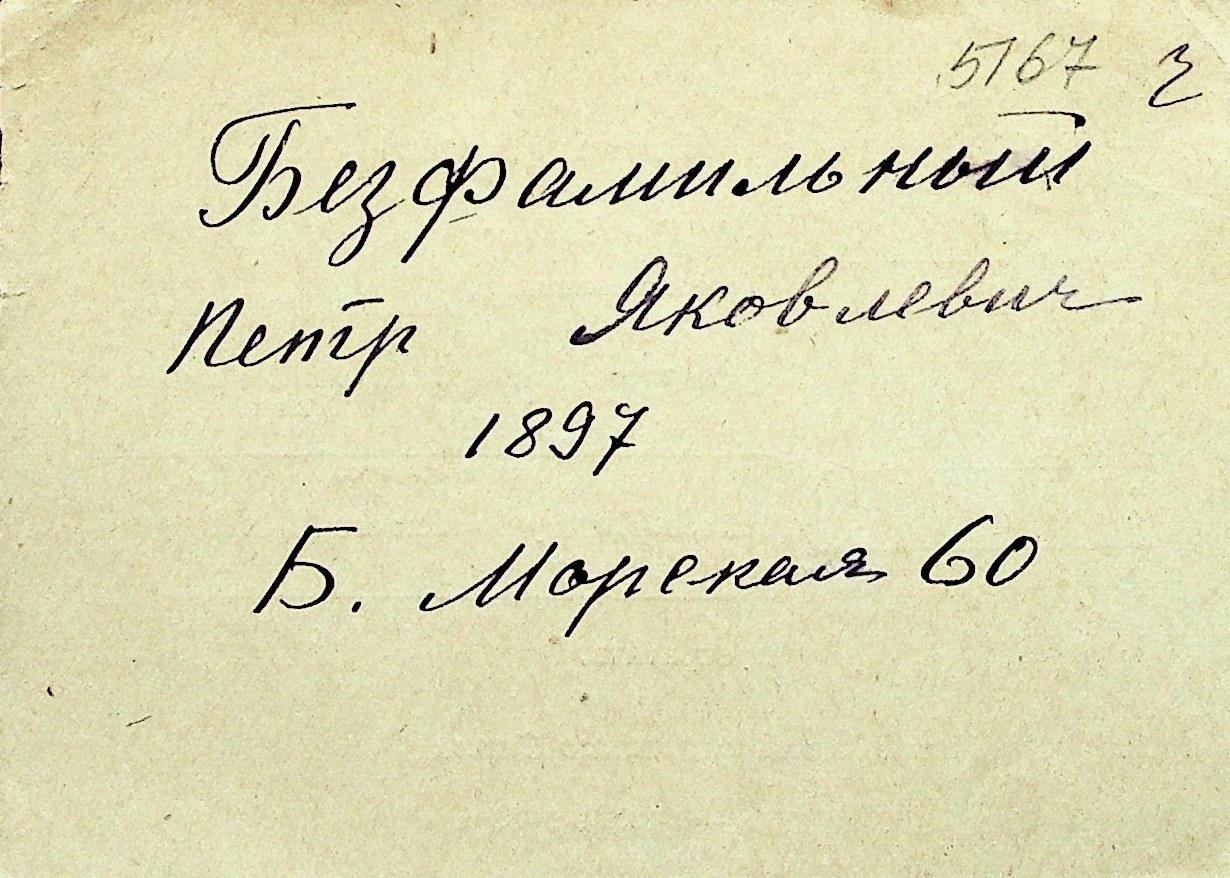 5167
Безфамильный
Петр Яковлевич
1897
Б. Морская 60